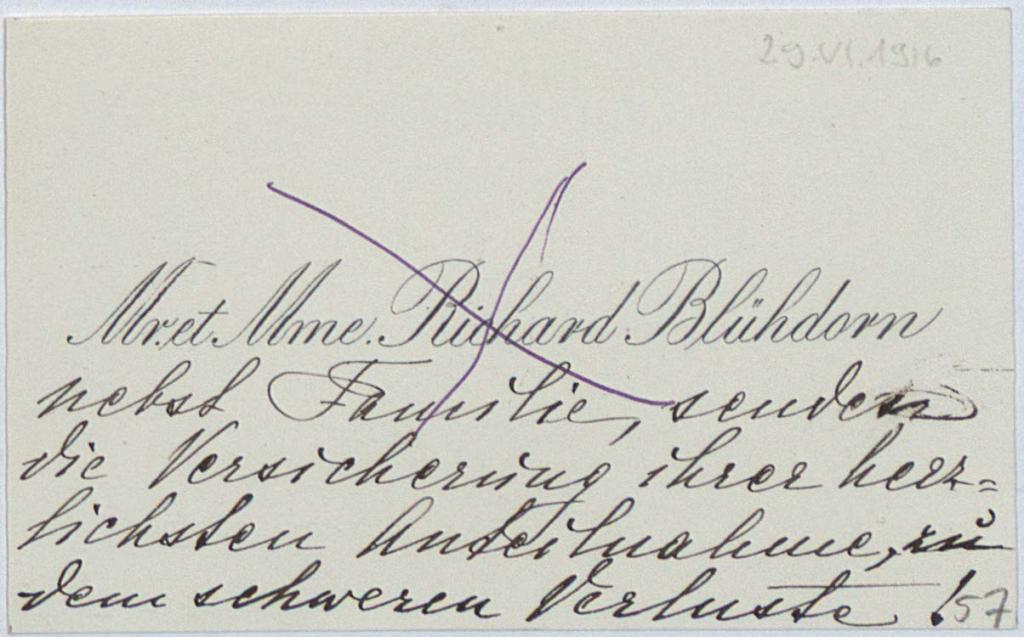 29.VI.1916
Mr. et Mme. Richard Blühdorn
nebst Familie, senden
die Versicherung ihrer herz=
lichsten Anteilnahme, zu
dem schweren Verluste !
57